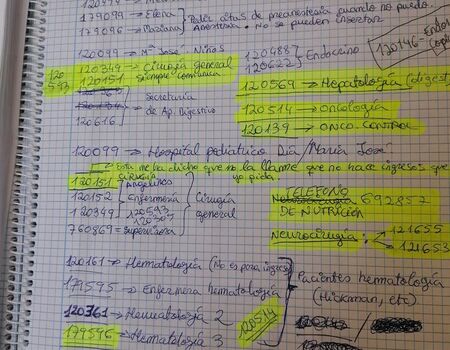 179099 → Elena
179096 → Mariana
Pedir citas de preanestesia cuando no puedo.
Anestesia. No se pueden insertar
120099 → Mª José. Niños
120349 → Cirugía general
120151 siempre comunica
120
593
120488
120622 → Endocrino
120146 → Endo
120569 → Hepatología (digest
120514 → Oncología
120139 → ONCO. CONTROL
Secretaría
de Ap. Digestivo
120616
120099 → Hospital pediatrico Dia / María José
Esta me ha dicho que no la llame que no hace ingresos que
yo pida
120151 Angelines
120152 enfermería
120349 120593
120307
760869 → Supervisora
Cirugía
general
TELEFONO
692857
DE NUTRICIÓN
Neurocirugía : → 121655
→ 121653
120161 → Hematología (No es para ingreso)
179595 → Enfermera hematología
120361 → Hematología 2
179596 → Hematología 3
120514
Pacientes hematología
(Hickman, etc)